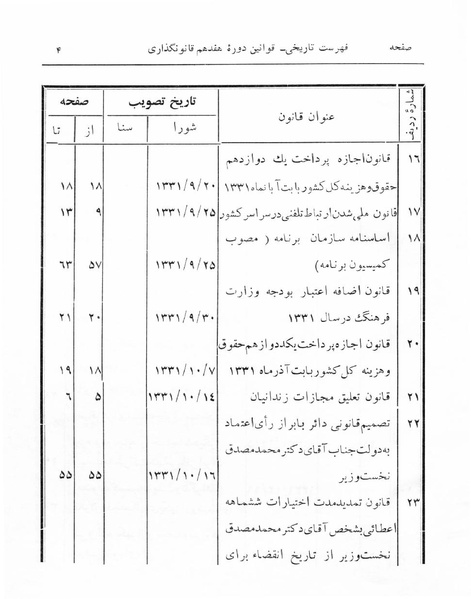 صفحه فهرست تاریخی ـ قوانین دورهٔ هفدهم قانونگذاری ۴
شمارهٔ ردیف عنوان قانون تاریخ تصویب صفحه
شورا سنا از تا
۱۶ قانون اجازه پرداخت یك دوازدهم
حقوق و هزینه کل کشور بابت آبانماه ۱۳۳۱ ۱۳۳۱/۹/۲۰ ۱۸ ۱۸
۱۷ قانون ملی شدن ارتباط تلفنی در سراسر کشور ۱۳۳۱/۹/۲۵ ۹ ۱۳
۱۸ اساسنامه سازمان برنامه ( مصوب
کمیسیون برنامه) ۱۳۳۱/۹/۲۵ ۵۷ ۶۳
۱۹ قانون اضافه اعتبار بودجه وزارت
فرهنگ در سال ۱۳۳۱ ۱۳۳۱/۹/۳۰ ۲۰ ۲۱
۲۰ قانون اجازه پرداخت یکدوازهم حقوق
و هزینه کل کشور بابت آذر ماه ۱۳۳۱ ۱۳۳۱/۱۰/۷ ۱۸ ۱۹
۲۱ قانون تعلیق مجازات زندانیان ۱۳۳۱/۱۰/۱۴ ۵ ۶
۲۲ تصمیم قانونی دائر بابراز رأی اعتماد
به دولت جناب آقای دکتر محمد مصدق
نخست وزیر ۱۳۳۱/۱۰/۱۶ ۵۵ ۵۵
۲۳ قانون تمدید مدت اختیارات ششماهه
اعطائی بشخص آقای دکتر محمد مصدق
نخست وزیر از تاریخ انقضاء برای